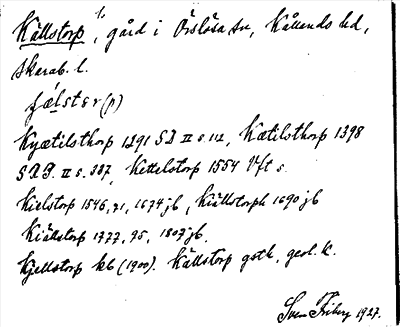 Källstorp, gård i Örslösa sn, Kållands hd,
Skarab. l.
Kyætilsthorp 1291 SD II s. 112, Kætilsthorp 1398
II s. 387, Kettelstorp 1554
Kielstorp 1546, 71, 1674 jb, Kiällstorph 1690 jb
Kiällstorp 1777, 95, 1803 jb.
Kjellstorp kb (1900). Källstorp gstk, geol. k.
Sven Friberg 1927.